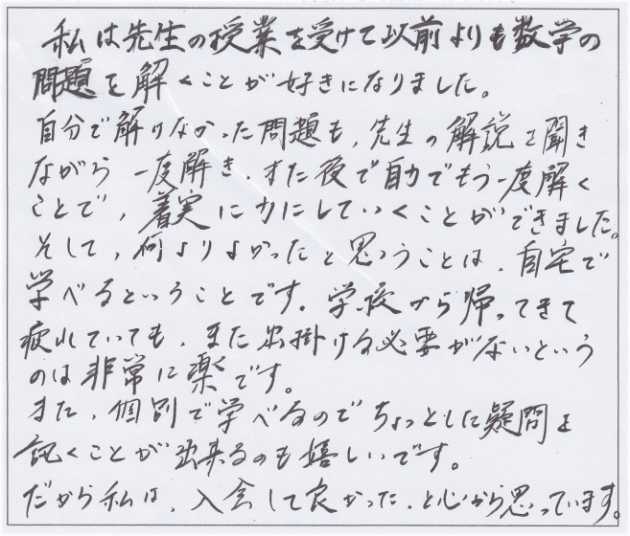 私は先生の授業を受けて以前よりも数学の
問題を解くことが好きになりました。
自分で解けなかった問題も、先生の解説を聞き
ながら一度解き、また後で自力でもう一度解く
ことで、着実に力にしていくことができました。
そして、何よりよかったと思うことは、自宅で
学べるということです。学校から帰ってきて
疲れていても、また出掛ける必要がないという
のは非常に楽です。
また、個別で学べるのでちょっとした疑問を
訊くことが出来るのも嬉しいです。
だから私は、入会して良かった、と心から思っています。